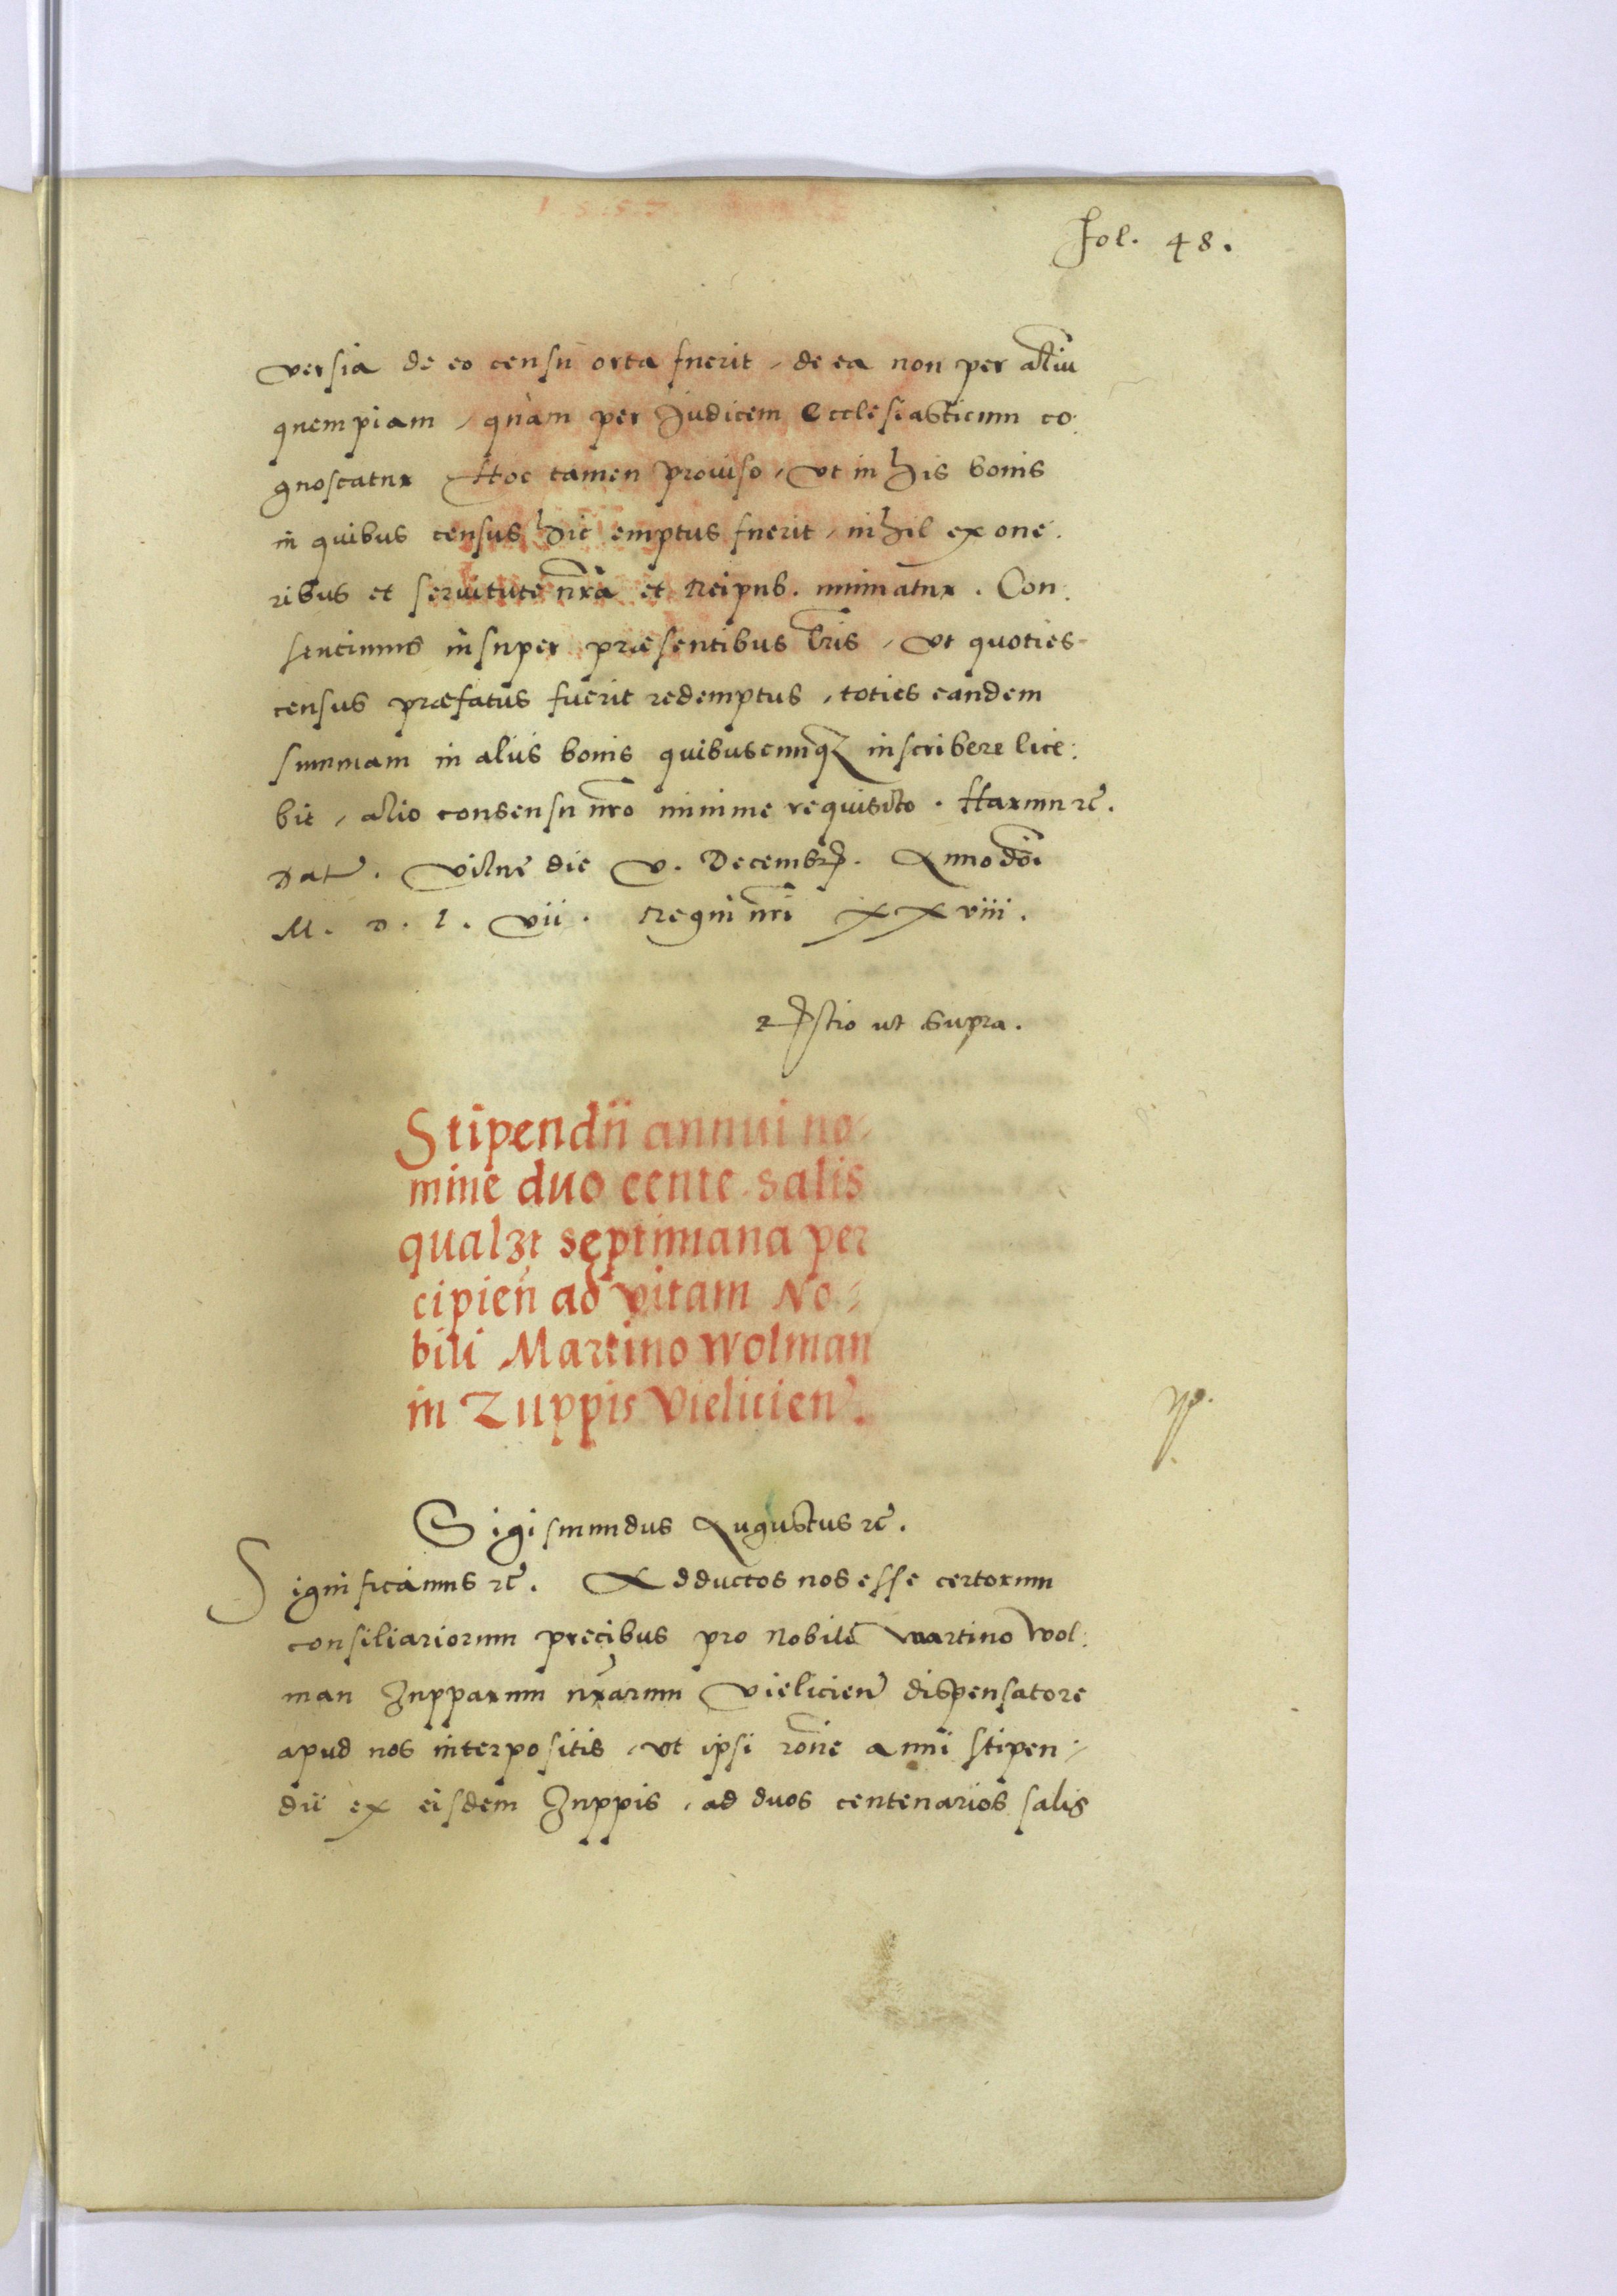 Fol. 48.
versia de eo censu orta fuerit, de ea non per aliu͂
quempiam, quàm per Judicem Ecclesiasticum co:
gnoscatur Hoc tamen proviso, ut in his bonis
in quibus census hic emptus fuerit, nihil ex one:
ribus et servitute nr̃a et Reipub. minuatur. Con:
sentimus insuper præsentibus lr̃is, ut quoties-
census præfatus fuerit redemptus, toties eandem
summam in aliis bonis quibuscunqꝫ inscribere lice:
bit, alio consensu nr̃o minime requisito. Harum ꝛc̃.
Dat̃. Vilnę die V. Decembr̃. Anno dñi
M. D. L. vii. Regni nr̃i xxviii.
ut supra.
Stipendii annui no-
mine duo cente. salis
qualꝫt septimana per
cipień ad vitam No-
bili Martino Wolman
in Zuppis Vielicień.
Sigismundus Augustus ꝛc̃.
Significamus ꝛc̃. Adductos nos esse certorum
consiliariorum precibus pro Nobile Martino Wol:
man Zupparum nr̃arum Vielicień dispensatore
apud nos interpositis, ut ipsi rõne annui stipen:
dii ex eisdem Zuppis, ad duos centenarios salis